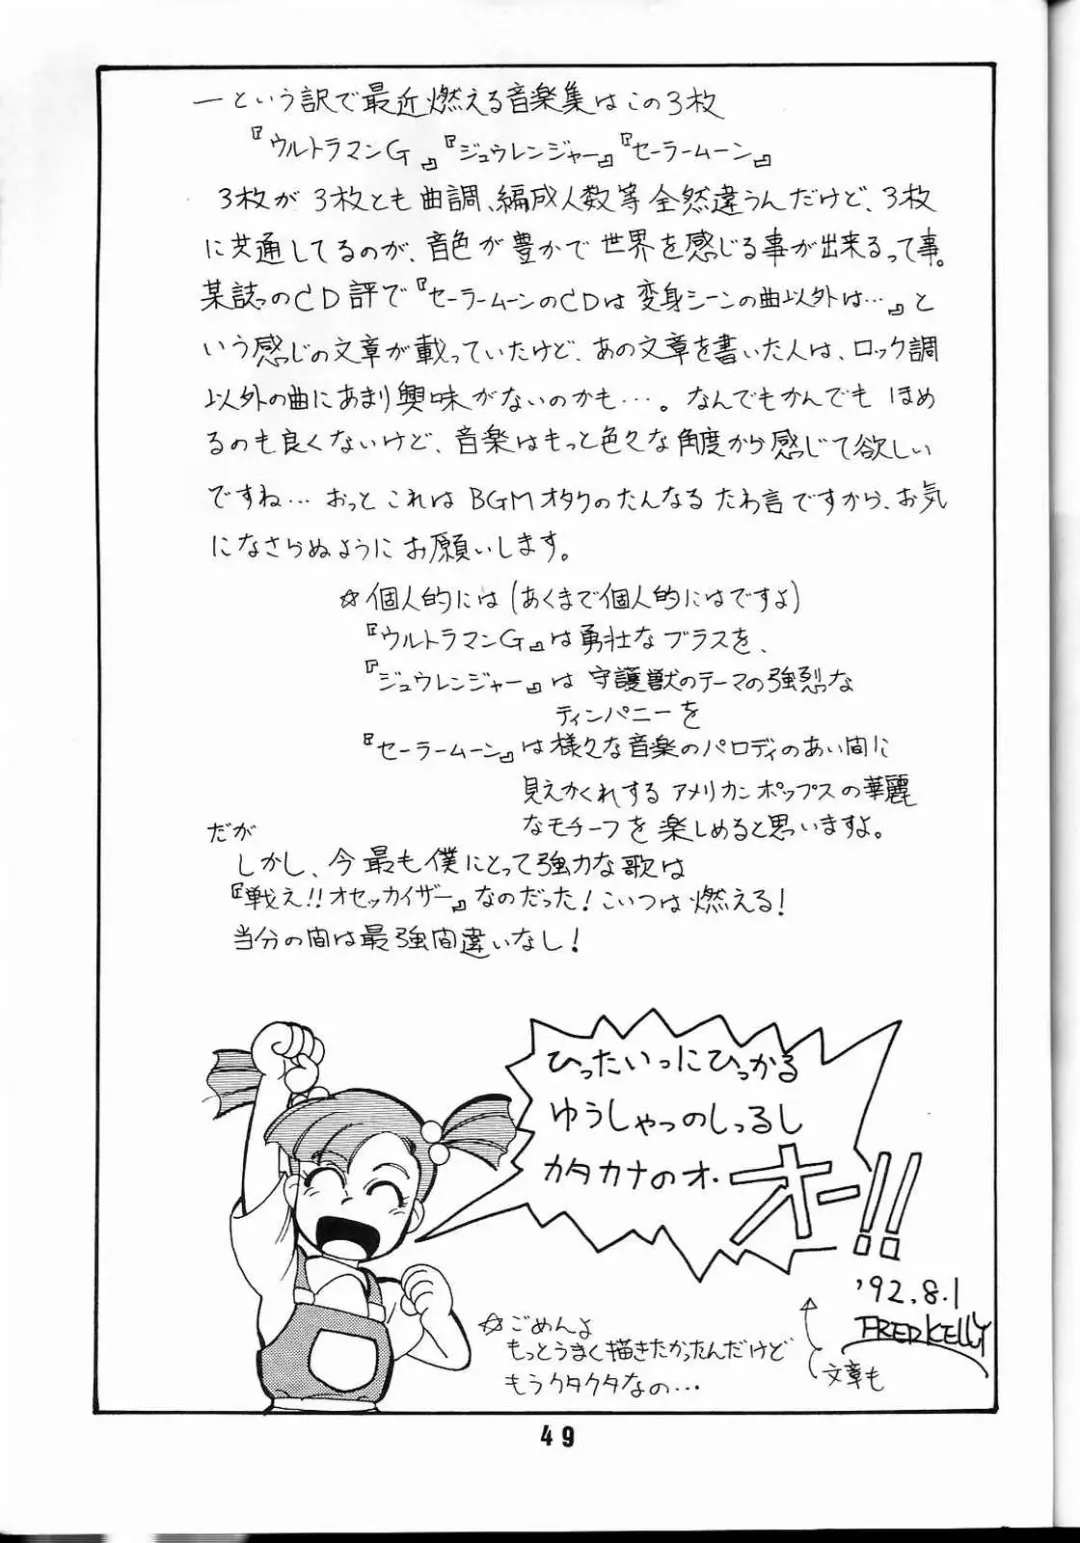 ーという訳で最近燃える音楽集はこの3枚
『ウルトラマンG』『ジュウレンジャー』『セーラームーン』
3枚が3枚とも曲調、編成人数等全然違うんだけど、3枚
に共通してるのが、音色が豊かで世界を感じる事が出来るって事。
某誌っのCD評で『セーラームーンのCDは変身シーンの曲以外は…』と
いう感じの文章が載っていたけど、あの文章を書いた人は、ロック調
以外の曲にあまり興味がないのかも…。なんでもかんでもほめ
るのも良くないけど、音楽はもっと色々な角度から感じて欲しい
ですね…おっとこれはBGMオタクのたんなるたわ言ですから、お気
になさらぬようにお願いします。
☆個人的には(あくまで個人的にはですよ)
『ウルトラマンG』は勇壮なブラスを、
『ジュウレンジャー』は守護獣のテーマの強烈な
ティンパニーを
『セーラームーン』は様々な音楽のパロディのあい間に
見えかくれするアメリカンポップスの華麗
なモチーフを楽しめると思いますよ。
だが
しかし、今最も僕にとって強力な歌は
『戦え!!オセッカイザー』なのだった!こいつは燃える!
当分の間は最強間違いなし!
ひったいっにひっかる
ゆうしゃっのしっるし
カタカナのオ・オー!!
'92.8.1
FRED KELLY
☆ごめんよ
もっとうまく描きたかったんだけど
もうクタクタなの…
文章も
49